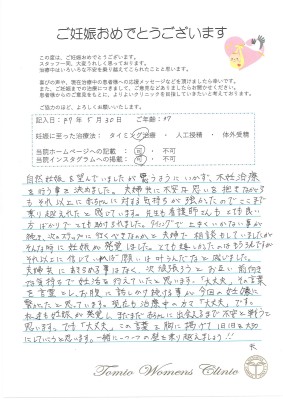 ご妊娠おめでとうございます
この度は、ご妊娠おめでとうございます。
スタッフ一同、大変うれしく思っております。
治療中はいろいろな不安を乗り越えてこられたことと思います。
喜びの声や、現在治療中の患者様への応援メッセージなどを頂けましたら幸いです。
また、ご妊娠までの治療につきまして、ご意見・ご感想などがありましたらお聞かせください。
患者様からのご意見をもとに、よりよいクリニックを目指していきたいと考えております。
ご協力のほど、よろしくお願いいたします。
記入日:R7年 5月30日 ご年齢:27
妊娠に至った治療法: タイミング治療 ・ 人工授精 ・ 体外受精
当院ホームページへの記載: 可 ・ 不可
当院インスタグラムへの掲載: 可 ・ 不可
自然妊娠を望んでいましたが思うようにいかず、不妊治療
を行う事を決めました。夫婦共に不安な思いを抱えながら
も それ以上に赤ちゃんに対する気持ちが強かったのでここまで
乗り越えれたと感じています。先生も看護師さんもとても良い
方ばかりでとても助けられました。タイミングで上手くいかない事が
続き、次のステップに行くべきなのかと夫婦で相談をしていましたが
そんな時に妊娠が発覚しました。
それ以上に信じていれば願いは叶うんだなと感じました。
夫婦共にあきらめる事はなく、次頑張ろうとお互い前向き
な気持ちで妊活を行えていたと思います。「大丈夫」その言葉
を言葉としお腹に話しかけ続ける事が今回の妊娠に
繋がったと思っています。現在も治療中の方で「大丈夫」です。
私達も妊娠が発覚し、まだまだ赤ちゃんに出会えるまで不安と戦うと
思います。でも「大丈夫」この言葉を胸に掲げて1日1日を大切
にしていこうと思います。一緒に一つ一つの壁を乗り越えましょう!!
Tomio Womens Clinic